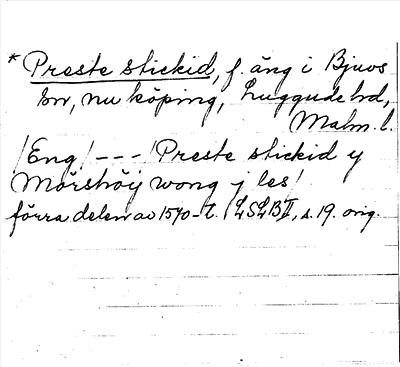 * Preste stickid, f. äng i Bjuvs
sn, nu köping, Luggude hd,
Malm. l.
/Eng/ --- /Preste stickid y
Mörshöÿ wong j les/
förra delen av 1570-t. (LSLB II, s. 19. orig.